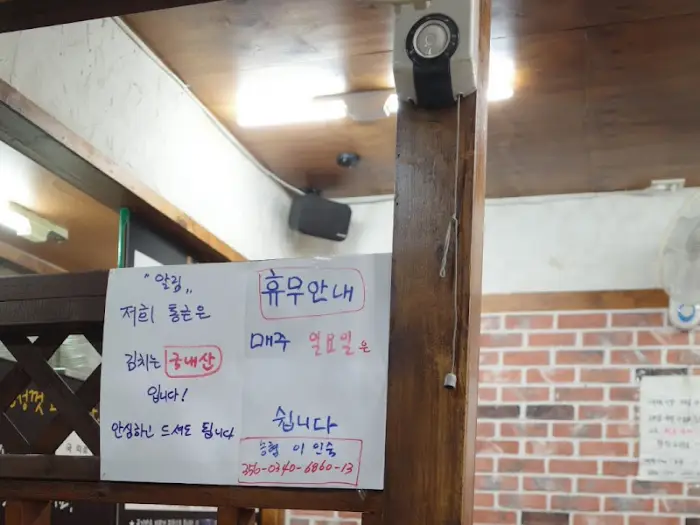 "알림"
저희 통큰은
김치는 국내산
입니다!
안심하고 드셔도 됩니다
휴무안내
매주 일요일은
쉽니다
농협 이인숙
356-0340-6860-13